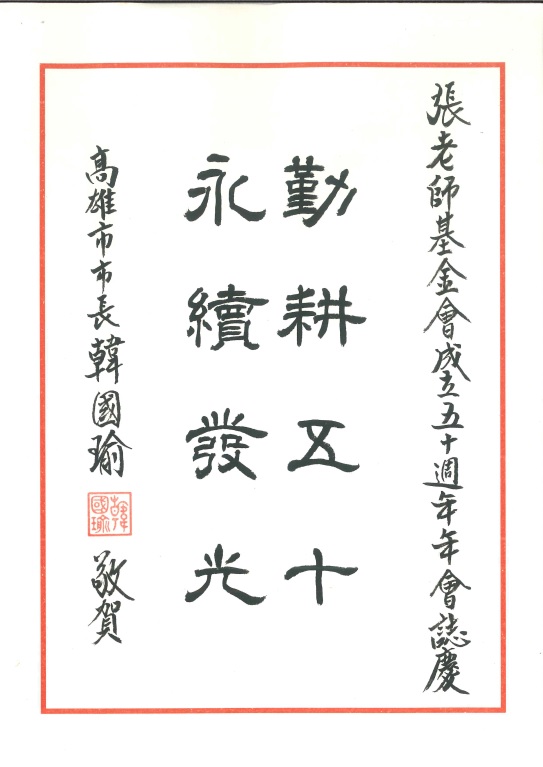 張老師基金會成立五十週年年會誌慶
勤耕五十
永續發光
高雄市市長韓國瑜
韓國瑜
敬賀